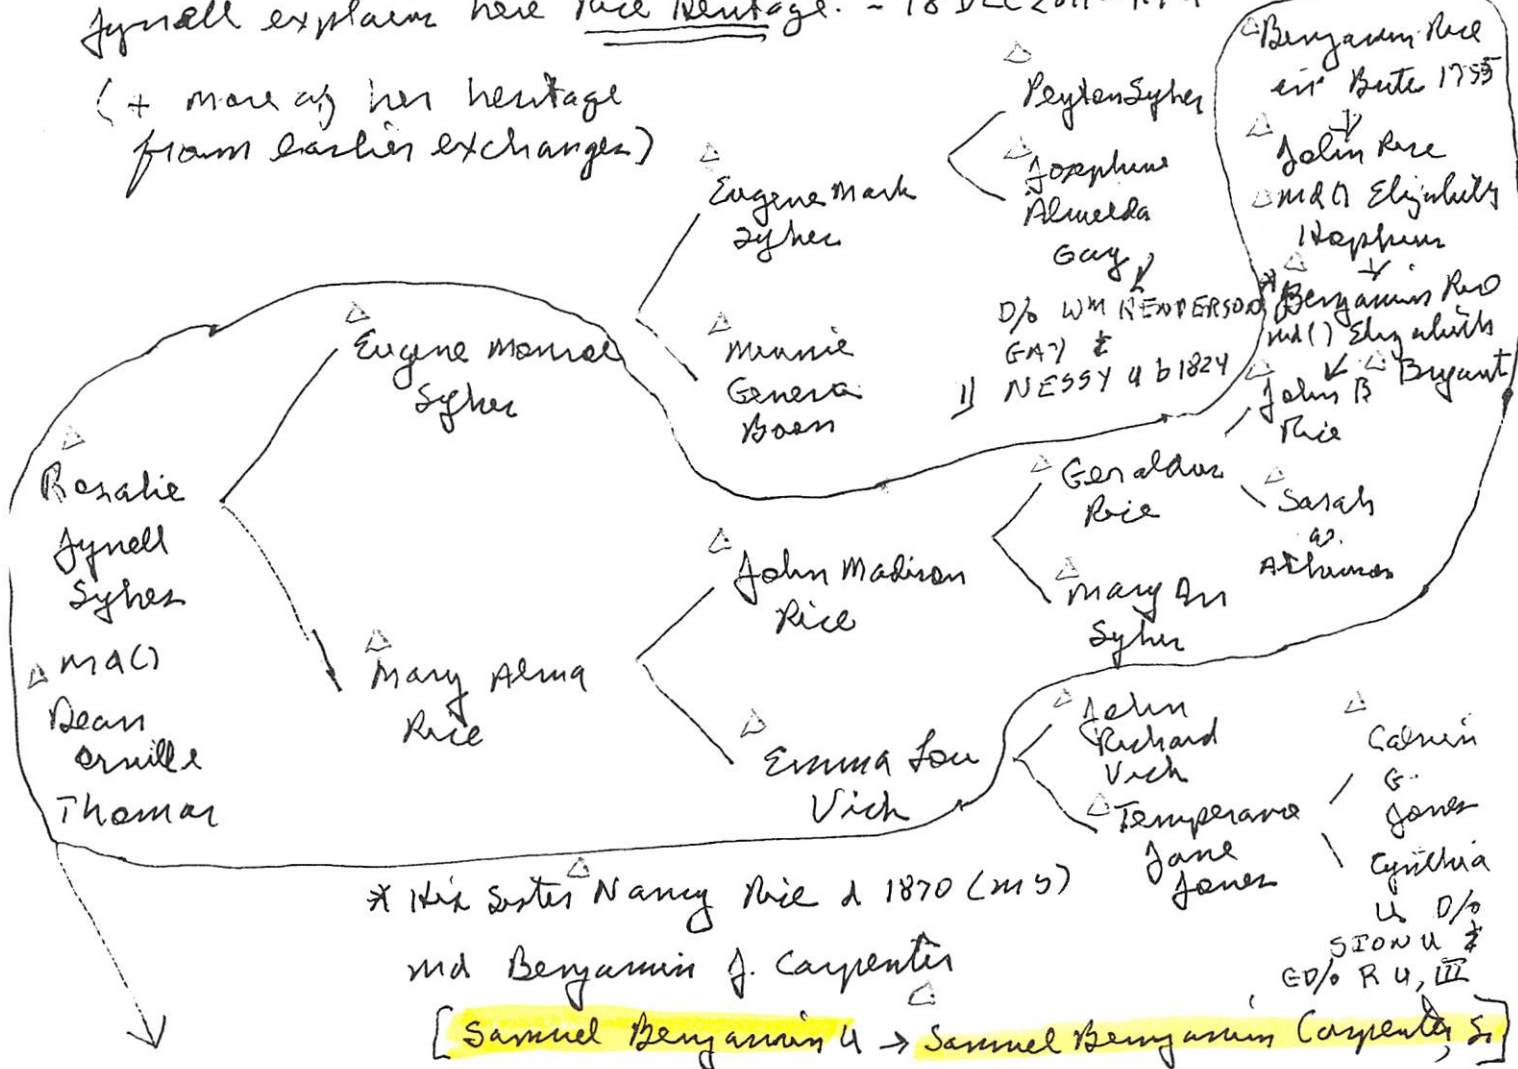 Jynell explains here Rice Heritage. - 18 DEC 2011
(+ more of her heritage
from earlier exchanges)
Rosalie
Jynell
Sykes
md()
Dean
Orville
Thomas
Eugene Monroe
Sykes
Mary Alma
Rice
Eugene Mark
Sykes
Minnie
Geneva
Boen
John Madison
Rice
Emma Lou
Vick
Peyton Sykes
Josephine
Almeida
Gay
D/o WM HENDERSON
GAY &
NESSY U b 1824
Geraldus
Rice
Mary An
Sykes
John
Richard
Vick
Temperance
Jane
Jones
Benjamin Rice
in Bute 1755
John Rice
md() Elizabeth
Hopkins
* Benjamin Rice
md() Elizabeth
Bryant
John B
Rice
Sarah
as.
Calvin
G.
Jones
Cynthia
U D/o
SION U &
GD/o R U, III
* His Sister Nancy Rice d 1870 (ms)
md Benjamin J. Carpenter
[Samuel Benjamin U → Samuel Benjamin Carpenter, Sr]